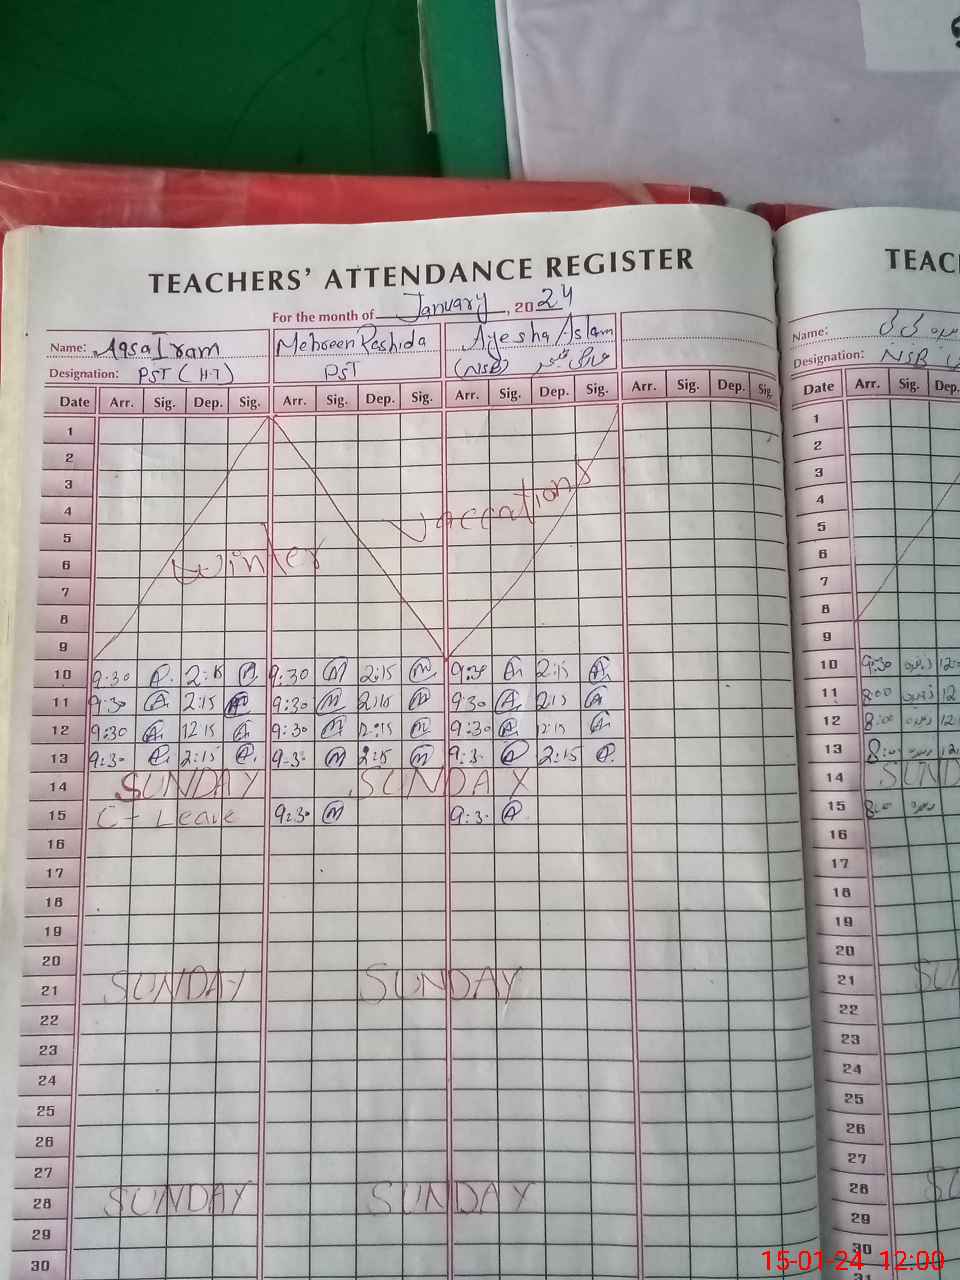 TEACHERS' ATTENDANCE REGISTER
For the month of January, 2024
Name: Aqsa Iram Mehreen Rashida Ayesha Aslam
Designation: PST (H-T) PST (NSB)
Date Arr. Sig. Dep. Sig. Arr. Sig. Dep. Sig. Arr. Sig. Dep. Sig. Arr. Sig. Dep. Sig.
1
2
3
4
5
6
7
8
9
Winter Vaccations
10 9:30 2:15 9:30 M 2:15 M 9:30 A 2:15 A
11 9:30 A 2:15 A 9:30 M 2:15 M 9:30 A 2:15 A
12 9:30 A 12:15 A 9:30 M 12:15 M 9:30 A 12:15 A
13 9:30 2:15 9:30 M 2:15 M 9:3. A 2:15
14 SUNDAY SUNDAY
15 C-Leave 9:30 M 9:3. A
16
17
18
19
20
21 SUNDAY SUNDAY
22
23
24
25
26
27
28 SUNDAY SUNDAY
29
30
TEAC
Name:
Designation: NSB
Date Arr. Sig. Dep.
1
2
3
4
5
6
7
8
9
10 9:30 12:
11 8:00 12
12 8:00 12
13 8:00 12
14 SUND
15 8:0
16
17
18
19
20
21 SU
22
23
24
25
26
27
28 SU
29
30
31
15-01-24 12:00